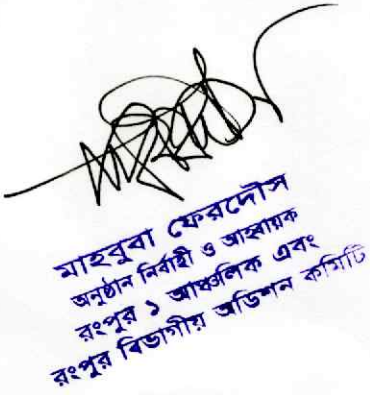 মাহবুবা ফেরদৌস
অনুষ্ঠান নির্বাহী ও আহবায়ক
রংপুর ১ আঞ্চলিক এবং
রংপুর বিভাগীয় অডিশন কমিটি